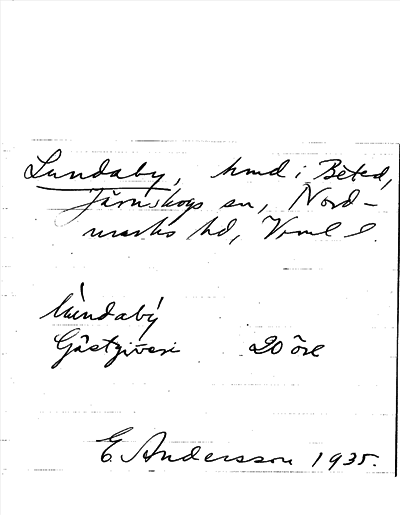 Lundaby, hmd i Beted,
Järnskogs sn, Nord-
marks hd, Vrml l.
Lùndabý
Gästgiveri 20 öre
E. Andersson 1935.